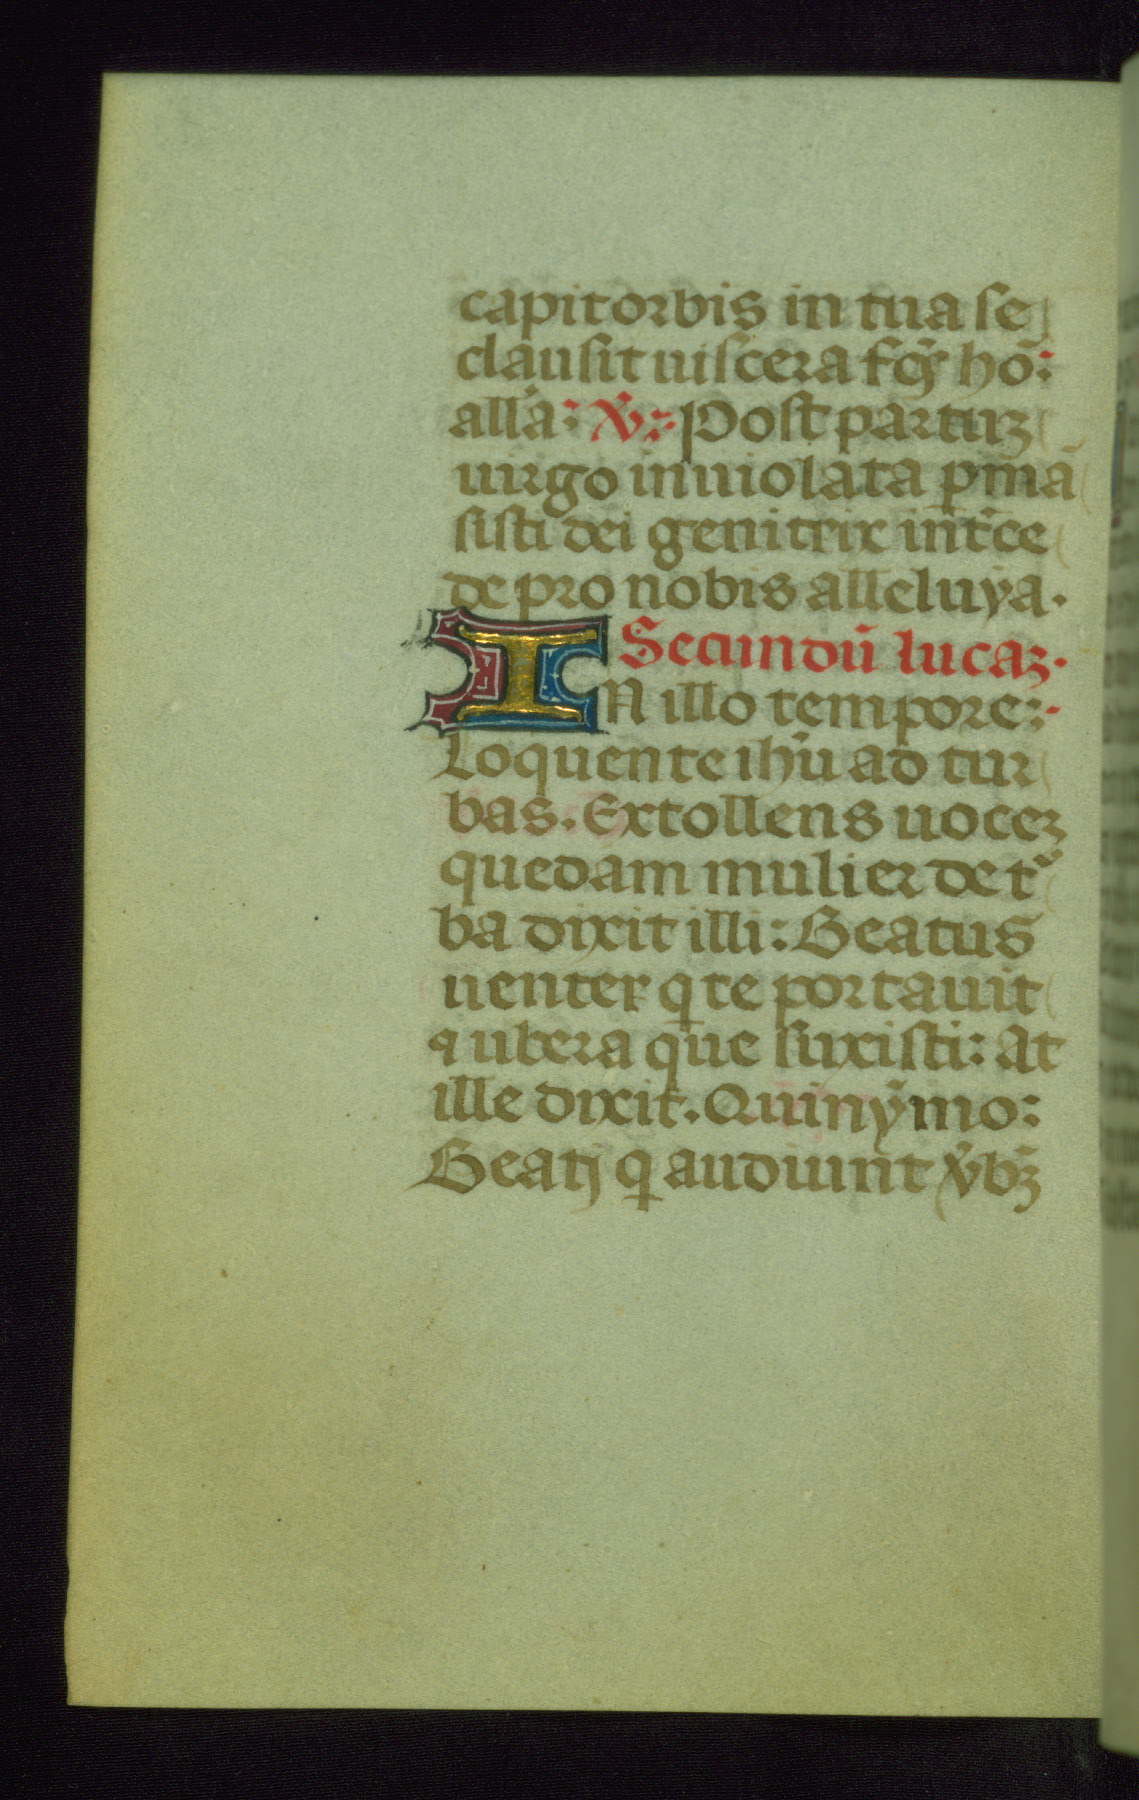 capit orbis in tua se
clausit uiscera fcs̉ hō:
alla᷈: V̉: Post partuꝫ
uirgo inuiolata ꝑmā
sisti dei genitrix int̄ce
de pro nobis alleluya.
Secundū lucaꝫ.
IN illo tempore:
Loquente ihū ad tur
bas. Extollens uoceꝫ
quedam mulier de tᷣ
ba dixit illi: Beatus
uenter q te portauit
⁊ ubera que suxisti: at
ille dixit. Quinỹmo:
Beatj q audiunt v̉bꝫ̄